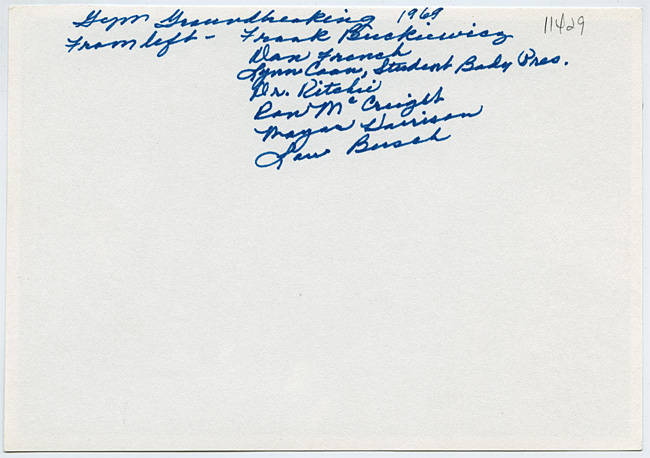 Gym Groundbreaking 1969
11429
From left - Frank Buckiewicz
Dan French
Lynn Coon, Student Body Pres.
Dr. Ritchie
Ron McCreight
Mayor Harrison
Lou Busch